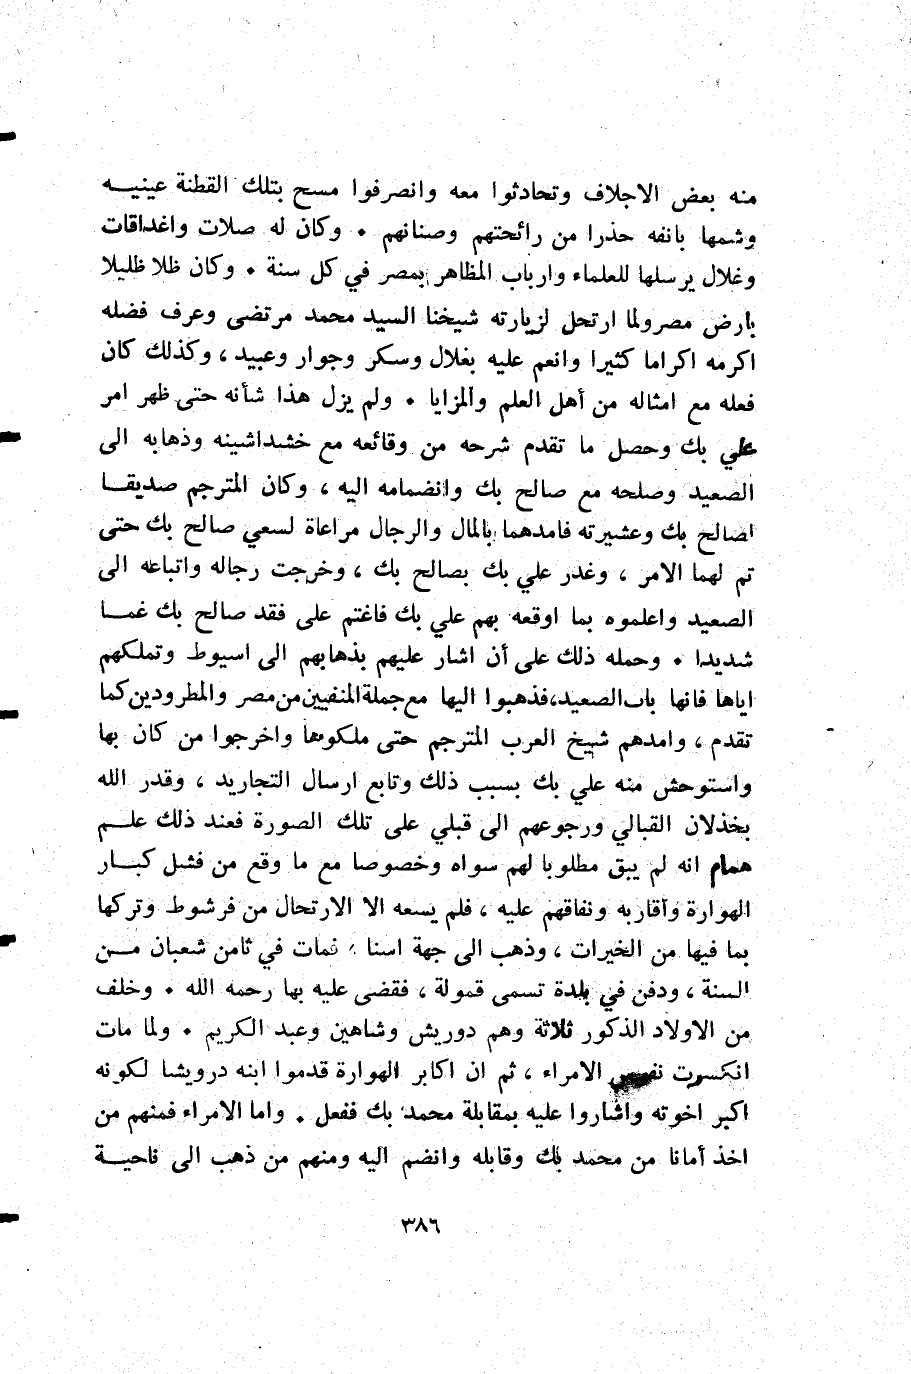 منه بعض الاجلاف وتحادثوا معه وانصرفوا مسح بتلك القطنة عينيــه
وشمها بانفه حذرا من رائحتهم وصنانهم • وكان له صلات واغداقات
وغلال يرسلها للعلماء وارباب المظاهر بمصر في كل سنة • وكان ظلا ظليلا
بارض مصر ولما ارتحل لزيارته شيخنا السيد محمد مرتضى وعرف فضله
اكرمه اكراما كثيرا وانعم عليه بغلال وسكر وجوار وعبيد ، وكذلك كان
فعله مع امثاله من أهل العلم والمزايا • ولم يزل هذا شأنه حتى ظهر امر
علي بك وحصل ما تقدم شرحه من وقائعه مع خشداشينه وذهابه الى
الصعيد وصلحه مع صالح بك وانضمامه اليه ، وكان المترجم صديقــا
لصالح بك وعشيرته فامدهما بالمال والرجال مراعاة لسعي صالح بك حتى
تم لهما الامر ، وغدر علي بك بصالح بك ، وخرجت رجاله واتباعه الى
الصعيد واعلموه بما اوقعه بهم علي بك فاغتم على فقد صالح بك غمــا
شديدا • وحمله ذلك على أن اشار عليهم بذهابهم الى اسيوط وتملكهم
اياها فانها باب الصعيد، فذهبوا اليها مع جملة المنفيين من مصر والمطرودين كما
تقدم ، وامدهم شيخ العرب المترجم حتى ملكوها واخرجوا من كان بها
واستوحش منه علي بك بسبب ذلك وتابع ارسال التجاريد ، وقدر الله
بخذلان القبالي ورجوعهم الى قبلي على تلك الصورة فعند ذلك علــم
همام انه لم يبق مطلوبا لهم سواه وخصوصا مع ما وقع من فشل كبــار
الهوارة وأقاربه ونفاقهم عليه ، فلم يسعه الا الارتحال من فرشوط وتركها
بما فيها من الخيرات ، وذهب الى جهة اسنا ، فمات في ثامن شعبان مــن
السنة ، ودفن في بلدة تسمى قمولة ، فقضى عليه بها رحمه الله • وخلف
من الاولاد الذكور ثلاثة وهم دوريش وشاهين وعبد الكريم • ولما مات
انكسرت نفوس الامراء ، ثم ان اكابر الهوارة قدموا ابنه درويشا لكونه
اكبر اخوته واشاروا عليه بمقابلة محمد بك ففعل • واما الامراء فمنهم من
اخذ أمانا من محمد بك وقابله وانضم اليه ومنهم من ذهب الى ناحيــة
٣٨٦